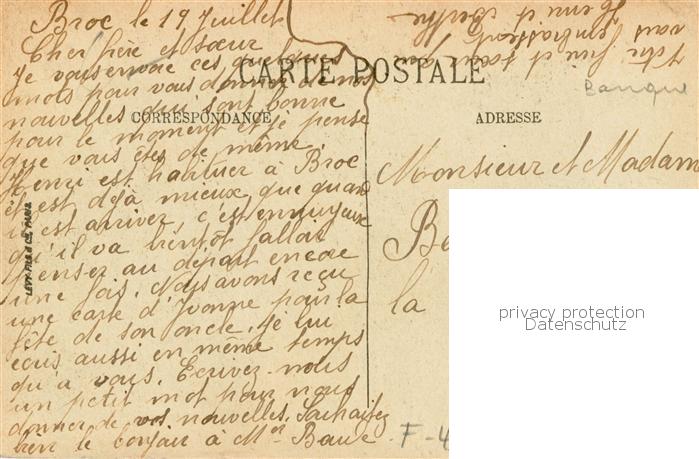 Broc le 19 Juillet
Cher frère et sœur
Je vous envoie ces quelques
mots pour vous donner de nos
nouvelles qui sont bonne
pour le moment et je pense
que vous êtes de même.
Henri est habituer à Broc
et est déjà mieux que quand
il est arrivez c'est ennuyeux
qu'il va bientôt falloir
penser au départ encore
une fois. Nous avons reçu
une carte d'Yvonne pour la
fête de son oncle. Je lui
écris aussi en même temps
qu'a vous. Ecrivez-nous
un petit mot pour nous
donner de vos nouvelles. Souhaitez
bien le bonjour à Mme
Votre frère et sœur qui
vous embrassent
Henri et Berthe
CARTE POSTALE
CORRESPONDANCE
ADRESSE
Banque
Monsieur et Madam
Be
la
LEVY FILS & Cie PARIS
privacy protection
Datenschutz
F-4